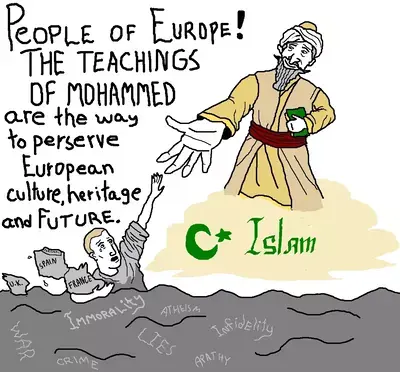 PEOPLE OF EUROPE!
THE TEACHINGS
OF MOHAMMED
are the way
to perserve
European
culture, heritage
and FUTURE.
Islam
SPAIN
U.K.
FRANCE
IMMORALITY
ATHEISM
Infidelity
WAR
LIES
CRIME
APATHY